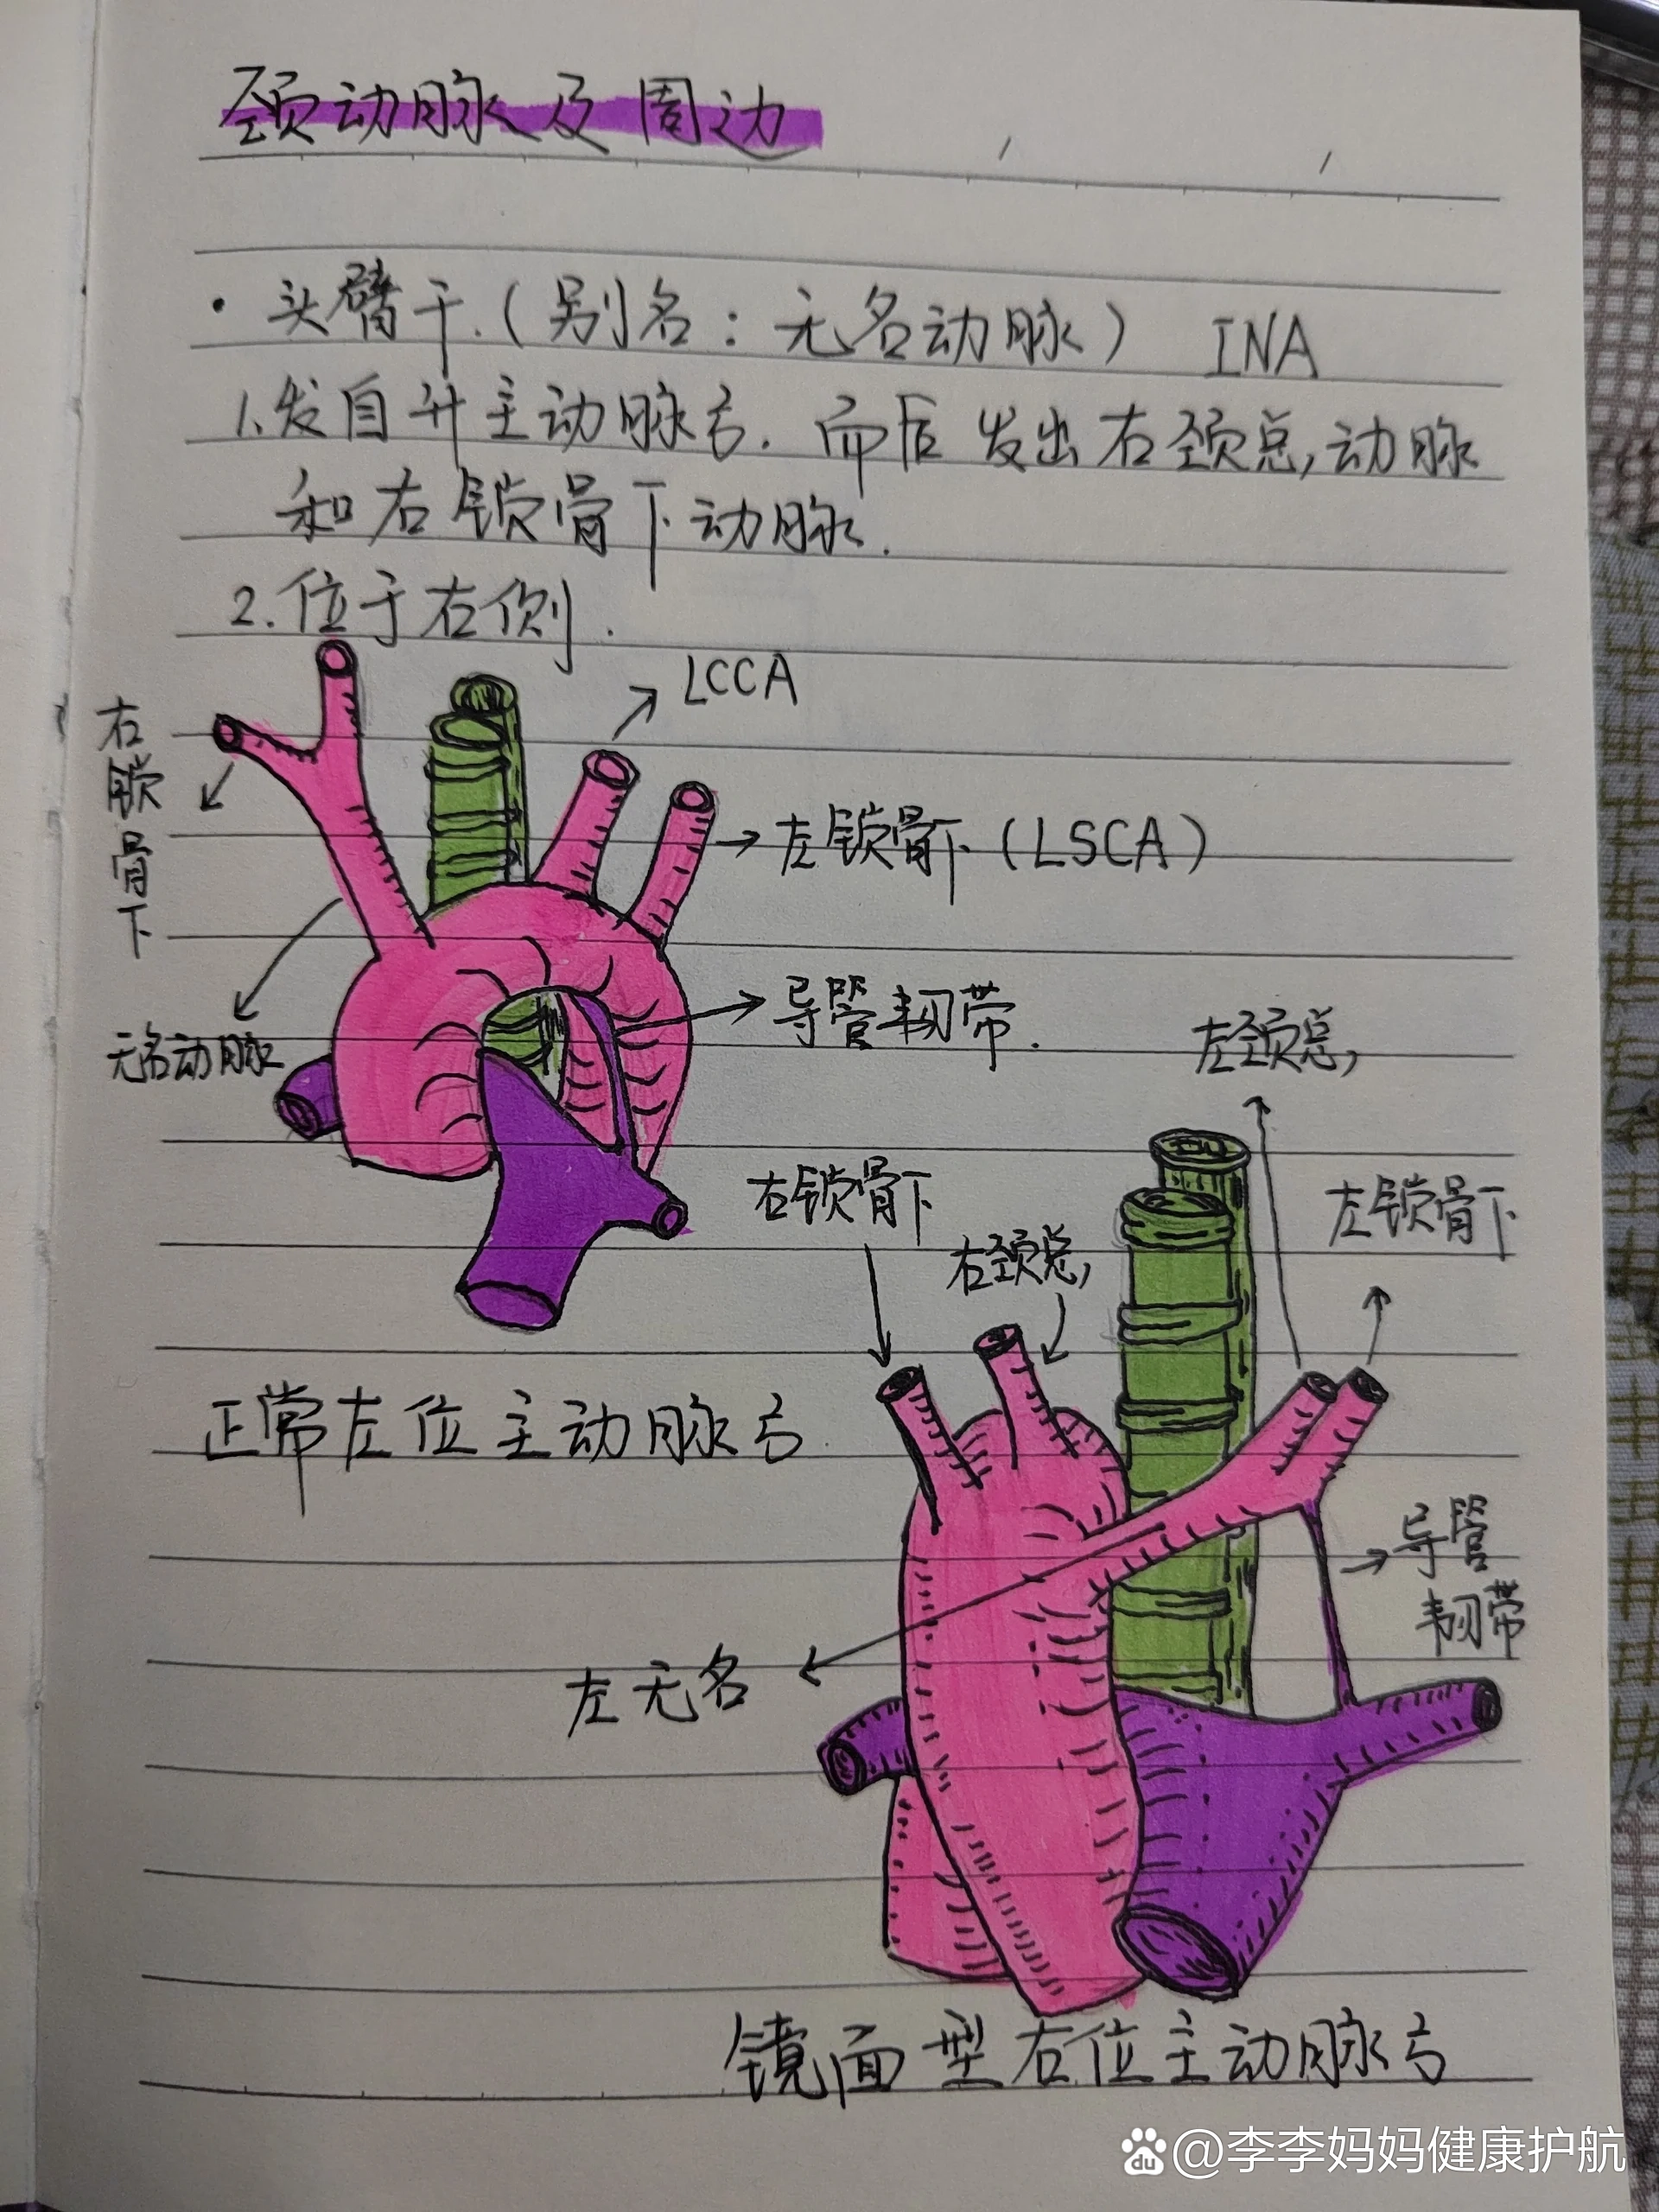 颈动脉及周边
·头臂干.(别名：无名动脉) INA
1.发自升主动脉弓.而后发出右颈总,动脉
和右锁骨下动脉.
2.位于右侧.
LCCA
右锁骨下
左锁骨下(LSCA)
无名动脉
导管韧带.
左颈总,
右锁骨下
右颈总,
左锁骨下
正常左位主动脉弓.
导管
韧带
左无名
镜面型右位主动脉弓
du @李李妈妈健康护航